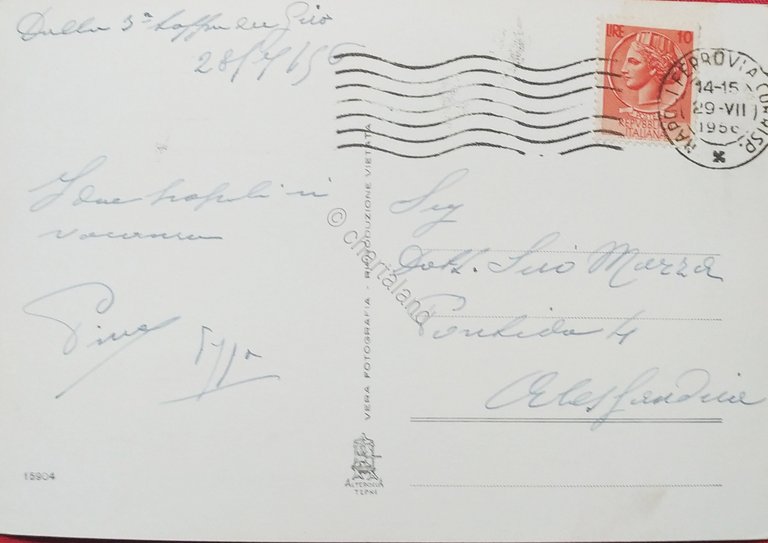 Dalla 3ª tappa del Giro
28/7/56
I due
in
vacanza
Pino
LIRE 10
REPUBBLICA
ITALIANA
NAPOLI FERROVIA CORRISP.
14-15
29-VII
1956
Sig
Dott. Ciró Mazza
Pontida 4
Alessandria
VERA FOTOGRAFIA - RIPRODUZIONE VIETATA
© chartaland
15904
ALTEROCCA
TERNI